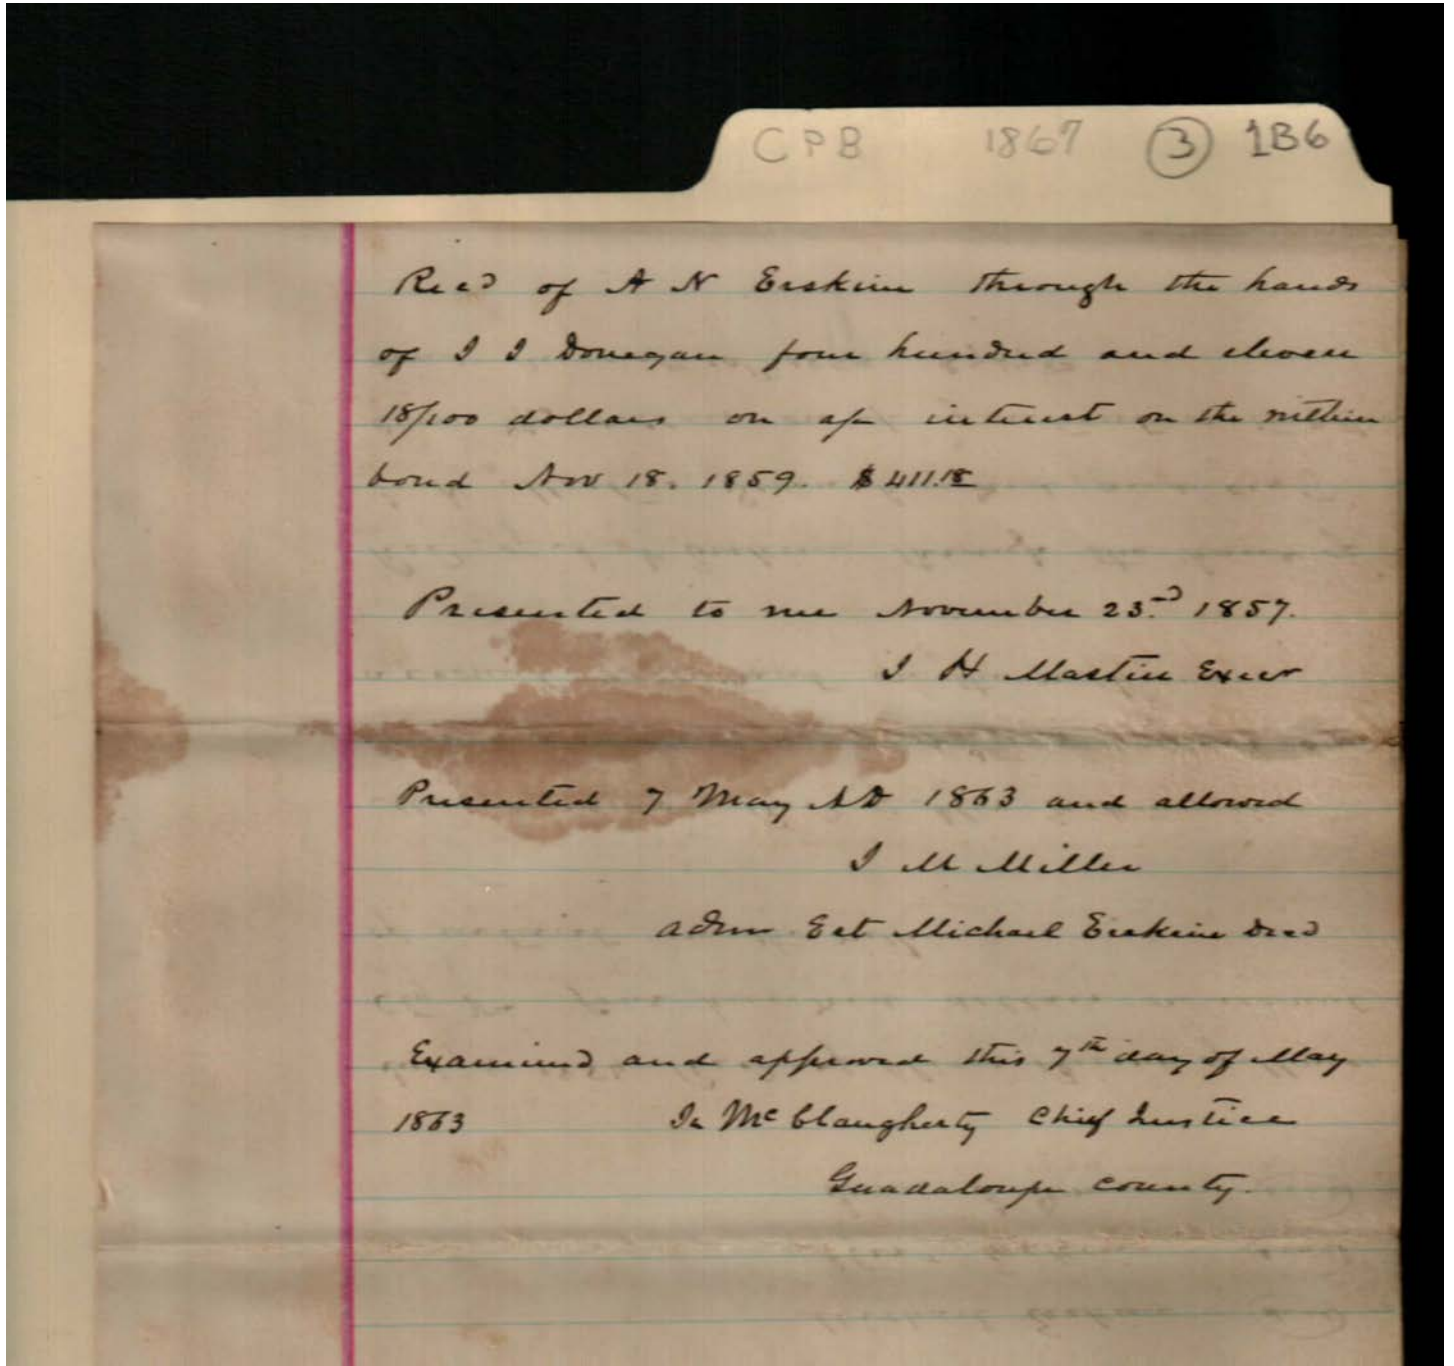 CPB 1867 3 1B6
Recd of A N Erskine through the hands
of J J Donegan four hundred and eleven
18/100 dollars on a/c interest on the within
bond Nov 18. 1859. $411.18
Presented to me November 23rd 1857.
J H Mastin Exer
Presented 7 May AD 1863 and allowed
J M Miller
adm Est Michael Erskine Decd
Examined and approved this 7th day of May
1863 Ja McClaugherty Chief Justice
Guadaloupe County.